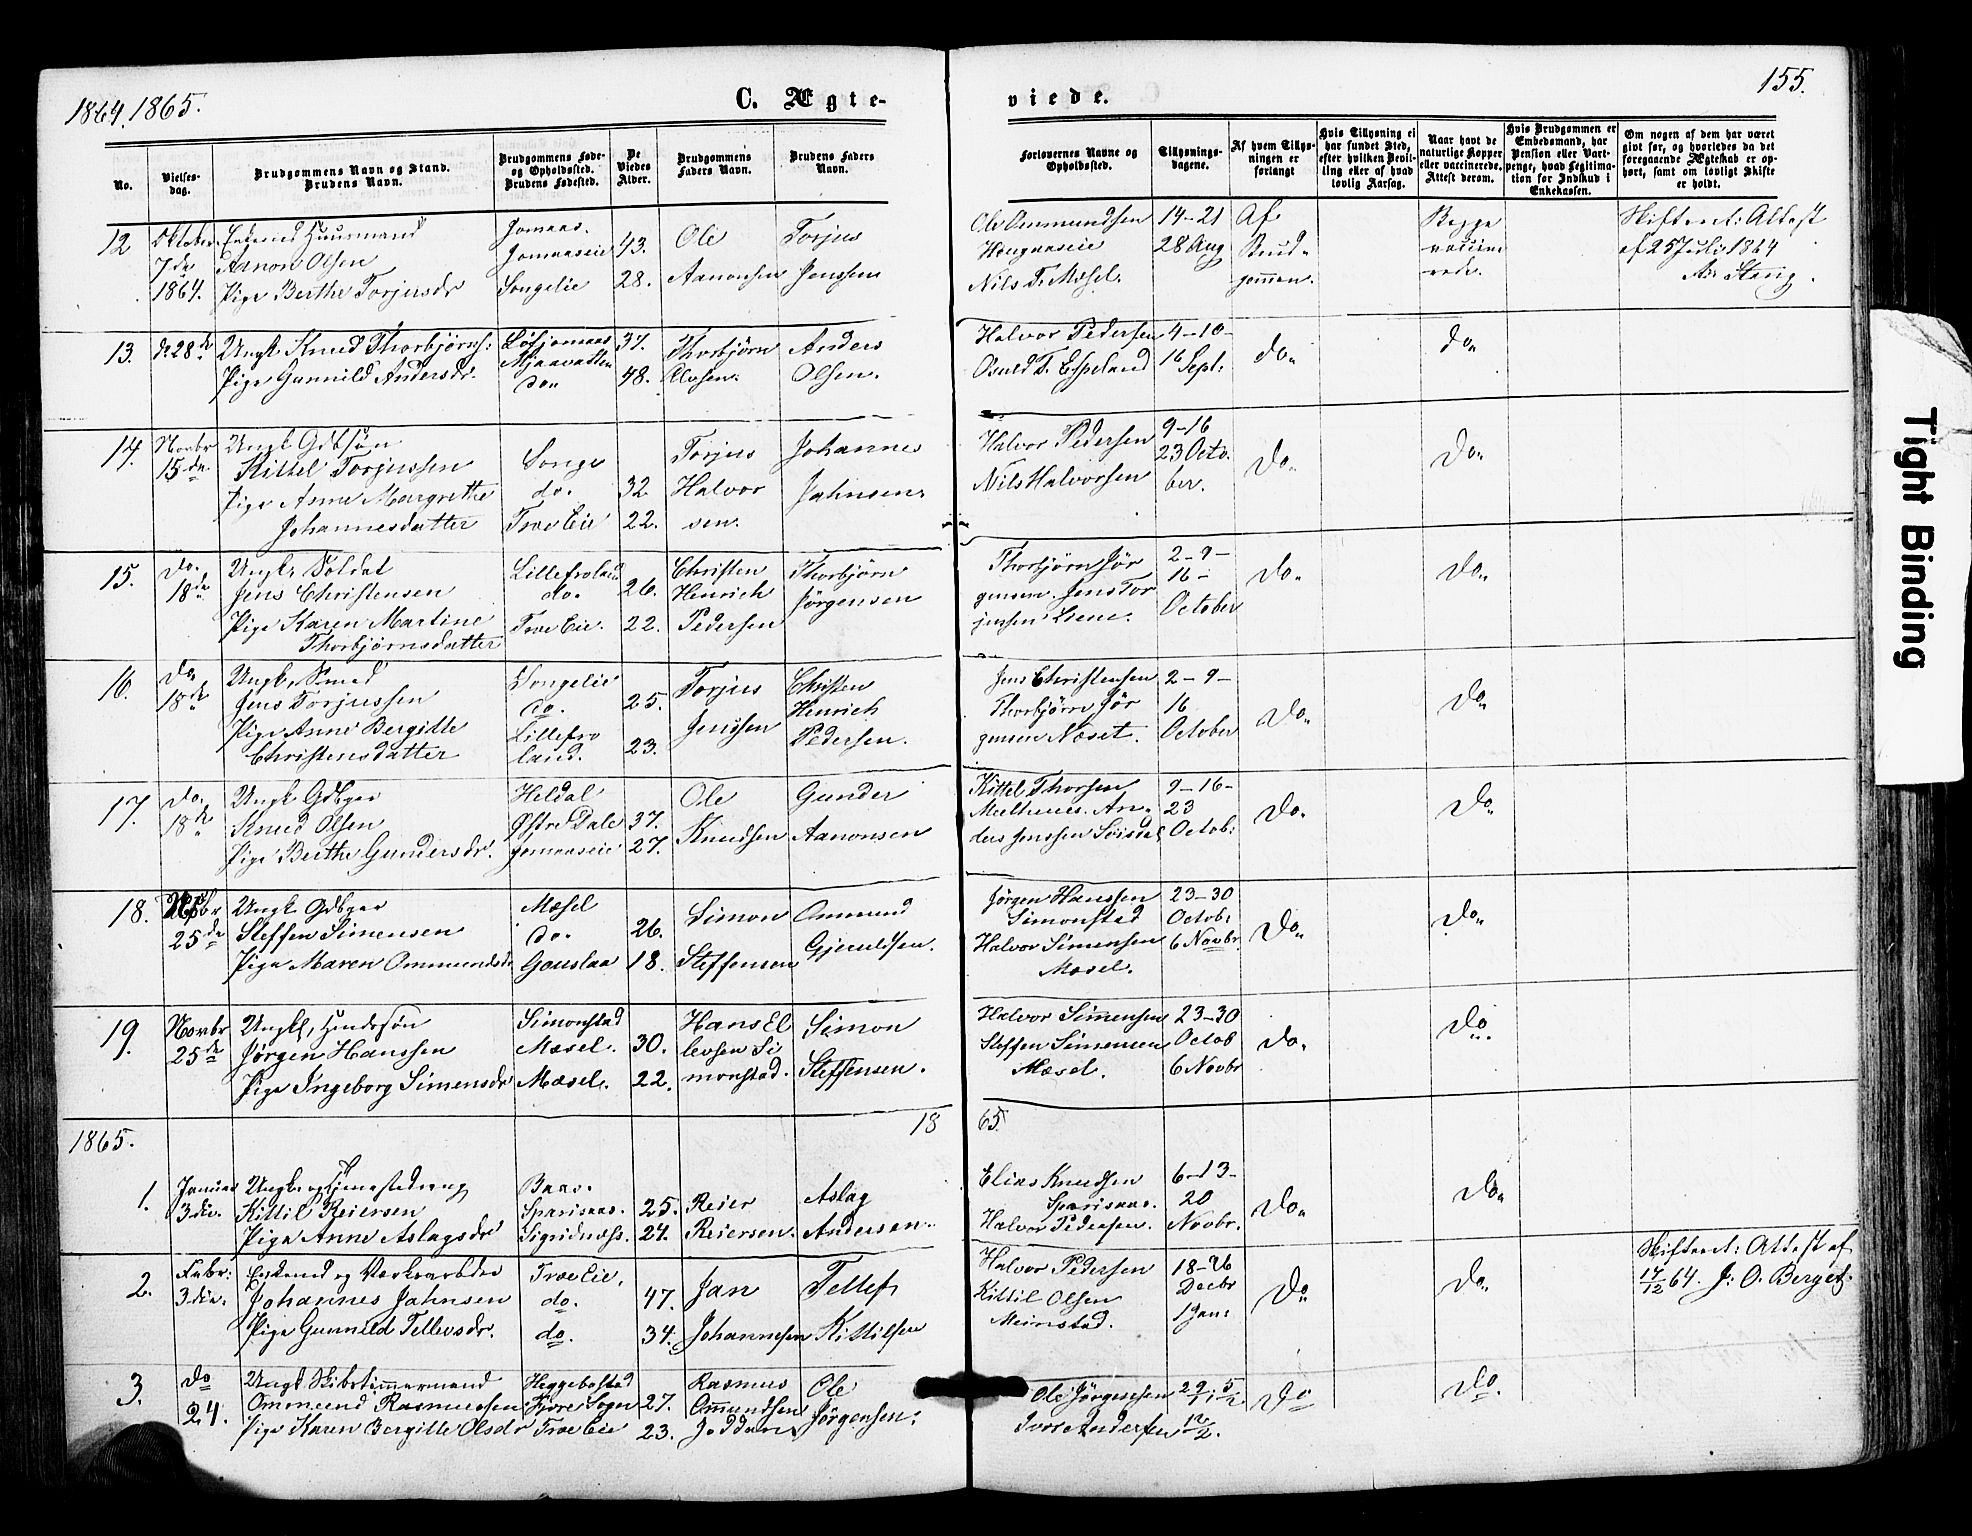 1864, 1865.
C. Ægte-
viede.
155.
No.
Vielses-
dag.
Brudgommens Navn og Stand.
Brudens Navn.
Brudgommens Føde-
og Opholdssted.
Brudens Fødested.
De
Viedes
Alder.
Brudgommens
Faders Navn.
Brudens Faders
Navn.
Forlovernes Navne og
Opholdssted.
Tillysnings-
dagene.
Af hvem Tillys-
ningen er
forlangt
Hvis Tillysning ei
har fundet Sted,
efter hvilken Bevil-
ling eller af hvad
lovlig Aarsag.
Naar havt de
naturlige Kopper
eller vaccinerede.
Attest derom.
Hvis Brudgommen er
Embedsmand, har
Pension eller Vart-
penge, hvad Legitima-
tion for Indskud i
Enkekassen.
Om nogen af dem har været
gift før, og hvorledes da det
foregaaende Ægteskab er op-
hørt, samt om lovligt Skifte
er holdt.
12
Oktober
7de
1864.
Enkemand Huusmand
Aanon Olsen
Pige Berthe Torjusdr
Jomaas.
Jomaaseie
Songeeie
43.
28.
Ole
Aanonsen
Torjus
Jenssen
Ole Ommundsen
Haugaaseie
Nils T. Mæsel.
14-21
28 Aug
Af
Brud-
gommen.
Begge
vaccine
rede.
Skifteret: Attest
af 25 Juli 1864
Stang.
13.
do 28de
Ungk. Knud Thorbjørns:
Pige Gunnild Andersdr.
Løsjomaas
Mjaavatten
do
37.
48.
Thorbjørn
Olvsen.
Anders
Olsen.
Halvor Pedersen
Osuld T. Espeland
4-10-
16 Sept:
do
do
14.
Novbr
15de
Ungk. Gdbsøn
Kittel Torjussen
Pige Anne Margrethe
Johannesdatter
Songe
do.
Froe Eie
32
22.
Torjus
Halvor
sen.
Johannes
Jahnsen
Halvor Pedersen
Nils Halvorsen
9-16
23 Octo.
ber.
Do
Do
15.
Do.
18de
Ungk. Soldat
Jens Christensen
Pige Karen Martine
Thorbjørnsdatter
Lillefroland
do.
Froe Eie.
26.
22.
Christen
Henrich
Pedersen
Thorbjørn
Jørgensen
Thorbjørn Jør
gensen. Jens Tor
jussen Liene.
2-9-
16-
October
Do
Do
16.
Do
18de
Ungk. Smed
Jens Torjussen
Pige Anne Bergitte
Christensdatter
Songeeie
do.
Lillefro
land.
25.
23.
Torjus
Jenssen
Christen
Hinrich
Pedersen.
Jens Christensen
Thorbjørn Jør
gensen Næset.
2-9-
16
October
Do
Do
17.
Do.
18de
Ungk. Gdbger
Knud Olsen
Pige Berthe Gundersdr.
Heldal
Øfstre Dale
Jomaaseie
37.
27.
Ole
Knudsen
Gunder
Aanonsen
Kittel Thorsen
Mælhuus. An-
ders Jenssen
9-16-
23
Octob:
Do.
Do
18.
Novbr
25de
Ungk. Gdbger
Steffen Simensen
Pige Maren Ommundsdr
Mæsel
do.
Gauslaa
26.
18.
Simon
Steffensen
Ommund
Gjeruldsen.
Jørgen Hanssen
Simonstad
Halvor Simensen
Mæsel.
23-30
Octob:
6 Novbr.
Do
Do
19.
Novbr
25de
Ungk, Kundesøn
Jørgen Hanssen
Pige Ingeborg Simensdr
Simonstad
Mæsel.
Mæsel.
30.
22.
Hans El
levsen Si
monstad.
Simon
Steffensen.
Halvor Simensen
Steffen Simensen
Mæsel.
23-30
Octob
6 Novbr
Do.
Do.
1865.
18
65.
1.
Januar
3die.
Ungk. og Tjenestedreng
Kittil Reiersen
Pige Anne Aslagsdr
Baas.
Sparisaas.
Sigridnæss.
25.
24.
Reier
Reiersen.
Aslag
Andersen.
Elias Knudsen
Sparisaas.
Halvor Pedersen.
6-13-
20
Novbr.
Do
Do
2.
Febr:
3die.
Enkemd og Værksarbdr
Johannes Jahnsen
Pige Gunnild Tellevsdr.
Froe Eie.
do.
do.
47.
34.
Jan
Johannesen
Tellef
Kittilsen
Halvor Pedersen
Kittil Olsen
Meinstad.
18-26
Decbr
1 Jan:
Do
Do
Skifteret: Attest af
17/12 64. J: O. Berget.
3.
Do
24.
Ungk Skibstimmermand
Ommund Rasmussen
Pige Karen Bergitte Olsdr
Heggebostad
Fjære Sogn
Froe Eie
27.
23.
Rasmus
Ommundsen
Joddan
Ole
Jørgensen.
Ole Jørgensen
Ivar Andersen
29/1. 5/2.
12/2.
Do
Do
Tight Binding